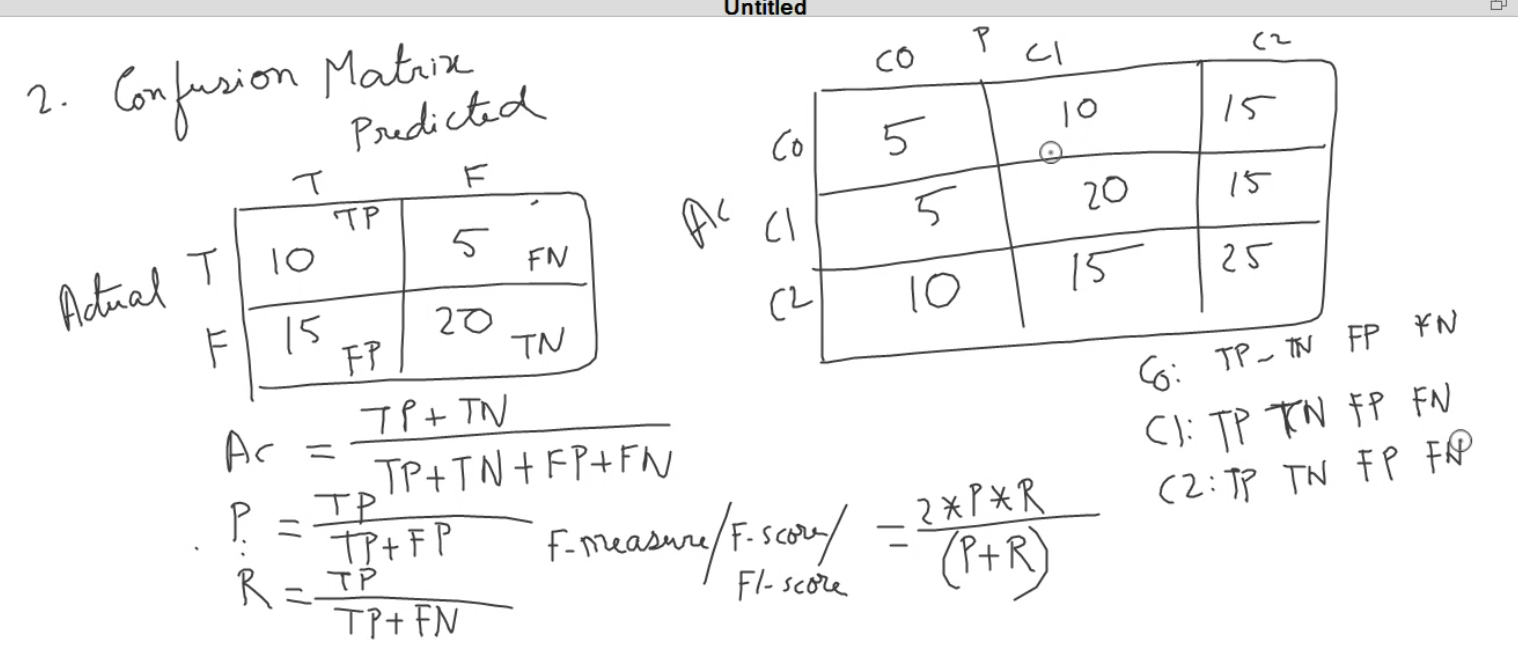 Untitled
2. Confusion Matrix
Predicted
T F
Actual T 10 TP 5 FN
F 15 FP 20 TN
Ac = TP + TN
TP + TN + FP + FN
P = TP
TP + FP
R = TP
TP + FN
F-measure/F-score/
F1-score
= 2*P*R
(P+R)
P
C0 C1 C2
Ac
C0 5 10 15
C1 5 20 15
C2 10 15 25
C0: TP - TN FP FN
C1: TP TN FP FN
C2: TP TN FP FN